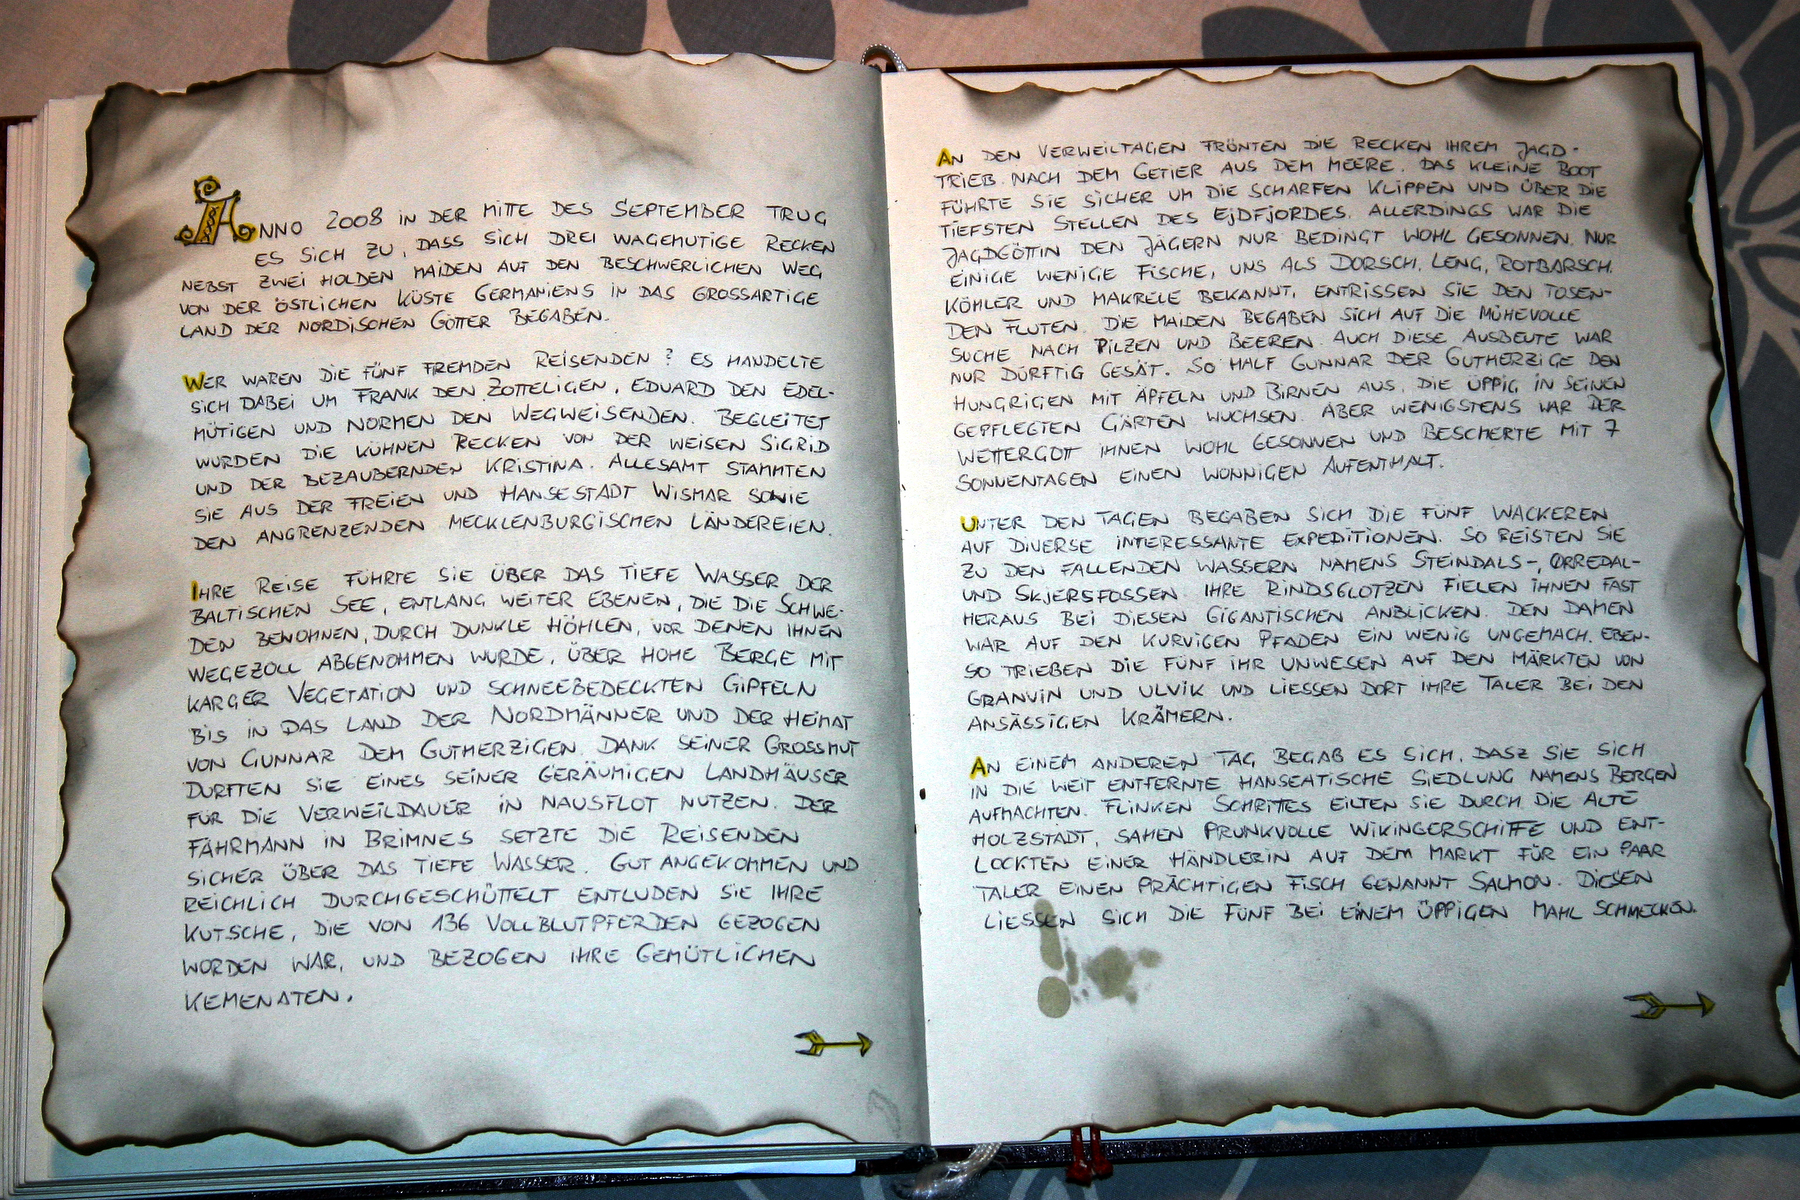 ANNO 2008 IN DER MITTE DES SEPTEMBER TRUG
ES SICH ZU, DASS SICH DREI WAGEMUTIGE RECKEN
NEBST ZWEI HOLDEN MAIDEN AUF DEN BESCHWERLICHEN WEG
VON DER ÖSTLICHEN KÜSTE GERMANIENS IN DAS GROSSARTIGE
LAND DER NORDISCHEN GÖTTER BEGABEN.
WER WAREN DIE FÜNF FREMDEN REISENDEN? ES HANDELTE
SICH DABEI UM FRANK DEN ZOTTELIGEN, EDUARD DEN EDEL-
MÜTIGEN UND NORMEN DEN WEGWEISENDEN. BEGLEITET
WURDEN DIE KÜHNEN RECKEN VON DER WEISEN SIGRID
UND DER BEZAUBERNDEN KRISTINA. ALLESAMT STAMMTEN
SIE AUS DER FREIEN UND HANSESTADT WISMAR SOWIE
DEN ANGRENZENDEN MECKLENBURGISCHEN LÄNDEREIEN.
IHRE REISE FÜHRTE SIE ÜBER DAS TIEFE WASSER DER
BALTISCHEN SEE, ENTLANG WEITER EBENEN, DIE DIE SCHWE-
DEN BEWOHNEN, DURCH DUNKLE HÖHLEN, VOR DENEN IHNEN
WEGEZOLL ABGENOMMEN WURDE, ÜBER HOHE BERGE MIT
KARGER VEGETATION UND SCHNEEBEDECKTEN GIPFELN
BIS IN DAS LAND DER NORDMÄNNER UND DER HEIMAT
VON GUNNAR DEM GUTHERZIGEN. DANK SEINER GROSSMUT
DURFTEN SIE EINES SEINER GERÄUMIGEN LANDHÄUSER
FÜR DIE VERWEILDAUER IN NAUSFLOT NUTZEN. DER
FÄHRMANN IN BRIMNES SETZTE DIE REISENDEN
SICHER ÜBER DAS TIEFE WASSER. GUT ANGEKOMMEN UND
REICHLICH DURCHGESCHÜTTELT ENTLUDEN SIE IHRE
KUTSCHE, DIE VON 136 VOLLBLUTPFERDEN GEZOGEN
WORDEN WAR, UND BEZOGEN IHRE GEMÜTLICHEN
KEMENATEN.
AN DEN VERWEILTAGEN FRÖNTEN DIE RECKEN IHREM JAGD-
TRIEB NACH DEM GETIER AUS DEM MEERE. DAS KLEINE BOOT
FÜHRTE SIE SICHER UM DIE SCHARFEN KLIPPEN UND ÜBER DIE
TIEFSTEN STELLEN DES EJDFJORDES. ALLERDINGS WAR DIE
JAGDGÖTTIN DEN JÄGERN NUR BEDINGT WOHL GESONNEN. NUR
EINIGE WENIGE FISCHE, UNS ALS DORSCH, LENG, ROTBARSCH,
KÖHLER UND MAKRELE BEKANNT, ENTRISSEN SIE DEN TOSEN-
DEN FLUTEN. DIE MAIDEN BEGABEN SICH AUF DIE MÜHEVOLLE
SUCHE NACH PILZEN UND BEEREN. AUCH DIESE AUSBEUTE WAR
NUR DÜRFTIG GESÄT. SO HALF GUNNAR DER GUTHERZIGE DEN
HUNGRIGEN MIT ÄPFELN UND BIRNEN AUS, DIE ÜPPIG IN SEINEN
GEPFLEGTEN GÄRTEN WUCHSEN. ABER WENIGSTENS WAR DER
WETTERGOTT IHNEN WOHL GESONNEN UND BESCHERTE MIT 7
SONNENTAGEN EINEN WONNIGEN AUFENTHALT.
UNTER DEN TAGEN BEGABEN SICH DIE FÜNF WACKEREN
AUF DIVERSE INTERESSANTE EXPEDITIONEN. SO REISTEN SIE
ZU DEN FALLENDEN WASSERN NAMENS STEINDALS-, ØRREDAL-
UND SKJERSFOSSEN. IHRE RINDSGLOTZEN FIELEN IHNEN FAST
HERAUS BEI DIESEN GIGANTISCHEN ANBLICKEN. DEN DAMEN
WAR AUF DEN KURVIGEN PFADEN EIN WENIG UNGEMACH. EBEN-
SO TRIEBEN DIE FÜNF IHR UNWESEN AUF DEN MÄRKTEN VON
GRANVIN UND ULVIK UND LIESSEN DORT IHRE TALER BEI DEN
ANSÄSSIGEN KRÄMERN.
AN EINEM ANDEREN TAG BEGAB ES SICH, DASZ SIE SICH
IN DIE WEIT ENTFERNTE HANSEATISCHE SIEDLUNG NAMENS BERGEN
AUFMACHTEN. FLINKEN SCHRITTES EILTEN SIE DURCH DIE ALTE
HOLZSTADT, SAHEN PRUNKVOLLE WIKINGERSCHIFFE UND ENT-
LOCKTEN EINER HÄNDLERIN AUF DEM MARKT FÜR EIN PAAR
TALER EINEN PRÄCHTIGEN FISCH GENANNT SALMON. DIESEN
LIESSEN SICH DIE FÜNF BEI EINEM ÜPPIGEN MAHL SCHMECKEN.